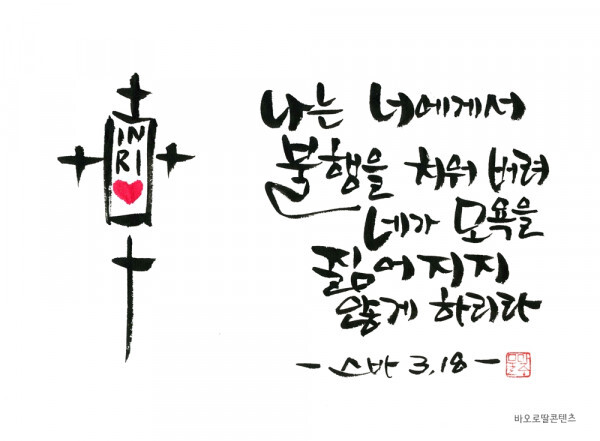 IN
RI
나는 너에게서
불행을 치워 버려
네가 모욕을
짊어지지
않게 하리라
- 스바 3,18 -
바오로딸콘텐츠